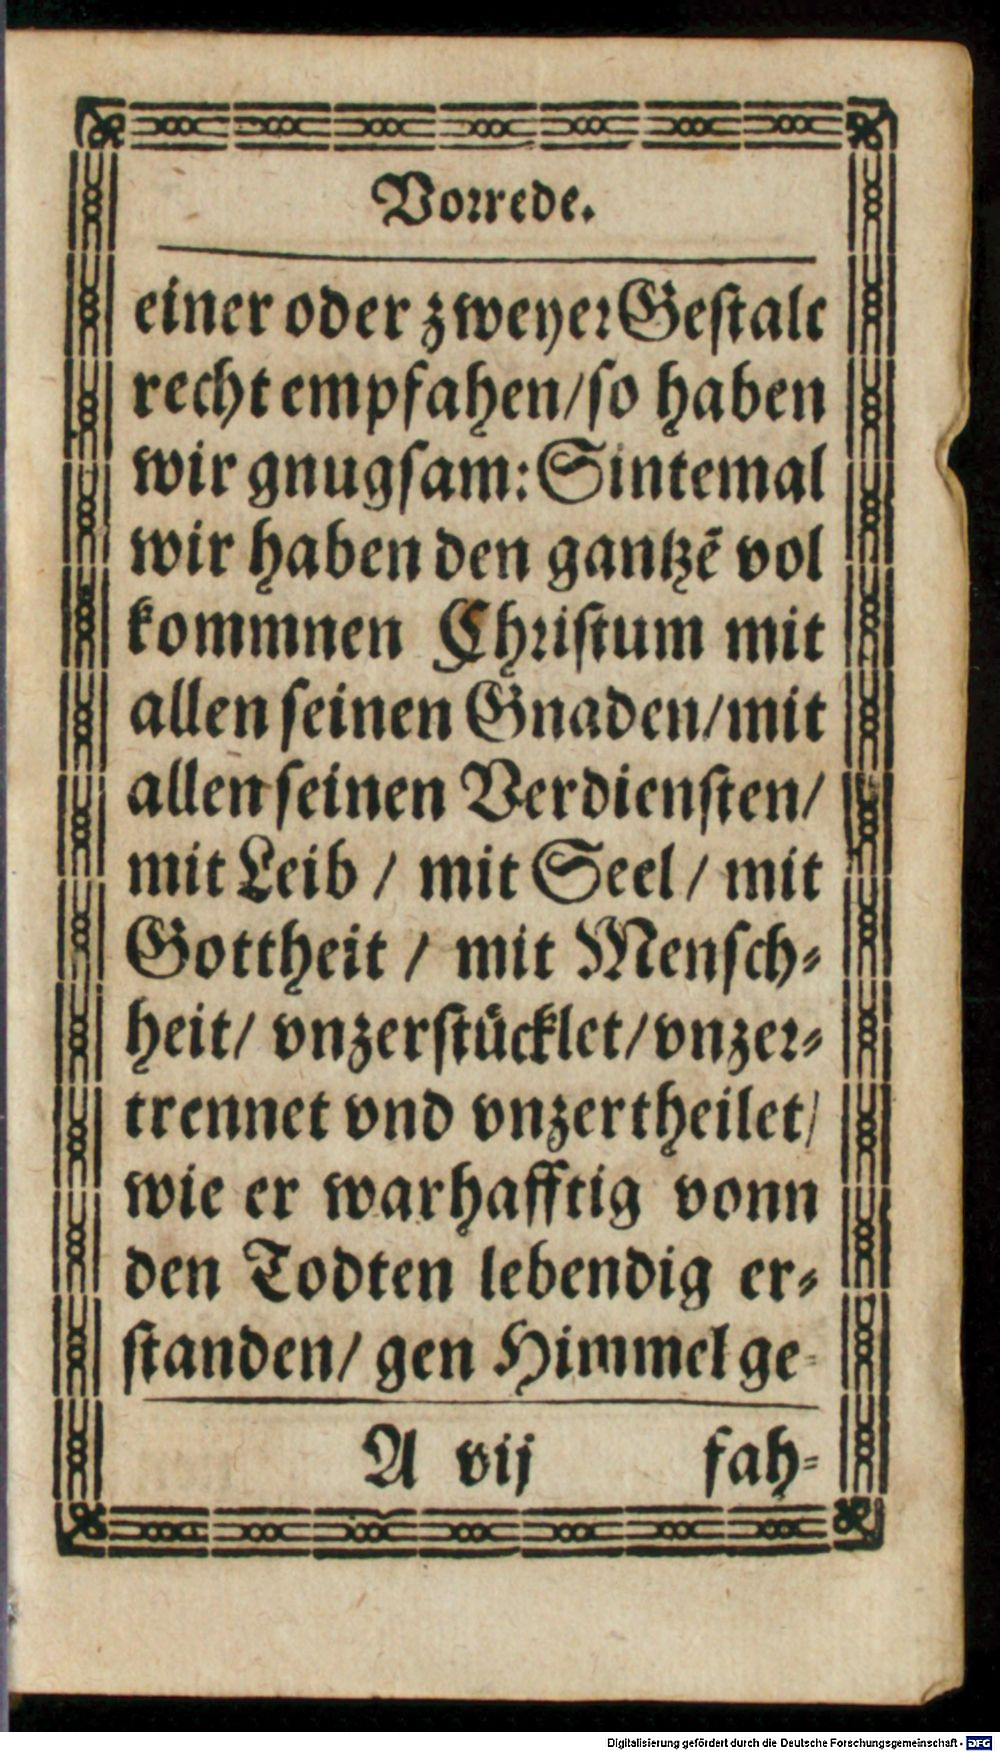 Vorrede.
einer oder zweyer Gestalt
recht empfahen/so haben
wir gnugsam: Sintemal
wir haben den gantzẽ vol
kommnen Christum mit
allen seinen Gnaden/mit
allen seinen Verdiensten/
mit Leib / mit Seel / mit
Gottheit / mit Mensch-
heit/ vnzerstücklet/vnzer-
trennet vnd vnzertheilet/
wie er warhafftig vonn
den Todten lebendig er-
standen/ gen Himmel ge-
A vij fah-
Digitalisierung gefördert durch die Deutsche Forschungsgemeinschaft - DFG